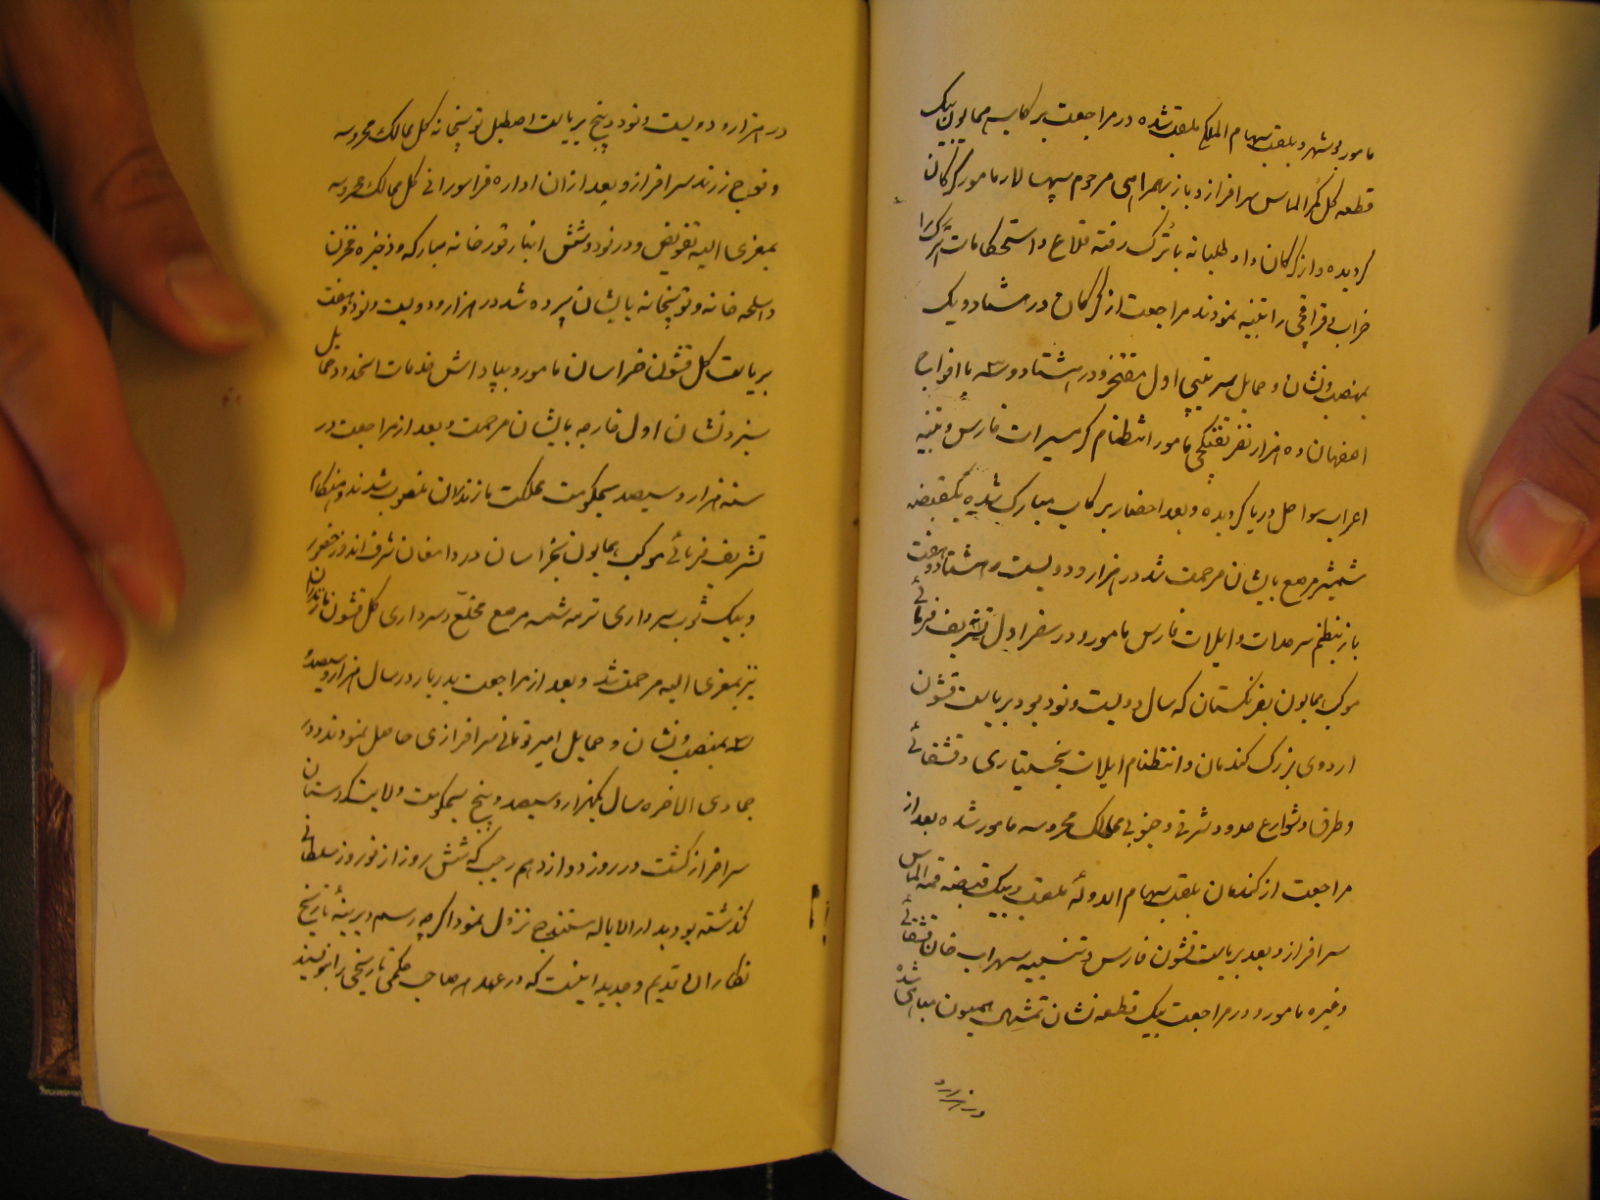 مامور بوشهر و بلقب سهام الملکی ملقب شده در مراجعت برکاب همایون بیک
قطعه گل کمر الماس سرافراز و باز بهمراهی مرحوم سپهسالار مامور گرکان
گردیده و از گرکان داوطلبانه باترک رفته قلاع و استحکامات اترک را
خراب قراقچی را تنبیه نمودند مراجعت از گرگان در هشتاد و یک
بمنصب و نشان و حمایل سرتیپی اول مفتخر و در هشتاد و سه با افواج
اصفهان و ده هزار نفر تفنگچی مامور انتظام گرمسیرات فارس و تنبیه
اعراب سواحل دریا گردیده و بعد احضار برکاب مبارک شده یکقبضه
شمشیر مرصع بایشان مرحمت شد در هزار و دویست و هشتاد و هفت
باز بنظم سرحدات و ایلات فارس مامور و در سفر اول تشریف فرمائی
موکب همایون بفرنگستان که سال دویست و نود بود بریاست قشون
اردوی بزرگ کندمان و انتظام ایلات بختیاری و قشقائی
و طرق و شوارع حدود شرقی و جنوبی ممالک محروسه مامور شده بعد از
مراجعت از کندمان بلقب سهام الدوله ملقب و بیک قبضه قمه الماس
سرافراز و بعد بریاست قشون فارس و تنبیه سهراب خان قشقائی
و غیره مامور و در مراجعت بیک قطعه نشان تمثال همیون مباهی شده
در هزار و
در هزار و دویست و نود و پنج بریاست اصطبل توپخانه کل ممالک محروسه
و فوج زرند سرافراز و بعد از ان اداره قراسورانی کل ممالک محروسه
بمعزی الیه تفویض و در نود و شش انبار قورخانه مبارکه و ذخیره مخزن
و اسلحه خانه و توپخانه بایشان سپرده شد در هزار و دویست و نود و هفت
بریاست کل قشون خراسان مامور و بپاداش خدمات انحدود حمایل
سبز و نشان اول خارجه بایشان مرحمت و بعد از مراجعت در
سنه هزار و سیصد بحکومت مملکت مازندران منصوب شدند و هنگام
تشریف فرمائی موکب همایون بخراسان در دامغان شرف اندوز حضور
و بیک ثوب سرداری ترمه شمسه مرصع مخلع و سرداری کل قشون مازندران
نیز بمعزی الیه مرحمت شد و بعد از مراجعت بدربار در سال هزار و سیصد و
سه بمنصب و نشان و حمایل امیر تومانی سرافرازی حاصل نمودند و در
جمادی الاخره سال یکهزار و سیصد و پنج بحکومت ولایت کردستان
سرافراز گشت در روز دوازدهم رجب که شش روز از نوروز سلطانی
گذشته بود بدار الایاله سنندج نزول نمود اگر چه رسم دیرینهٔ تاریخ
نگاران قدیم و جدید اینست که در عهد هر صاحب حکمی تاریخی را بنویسند